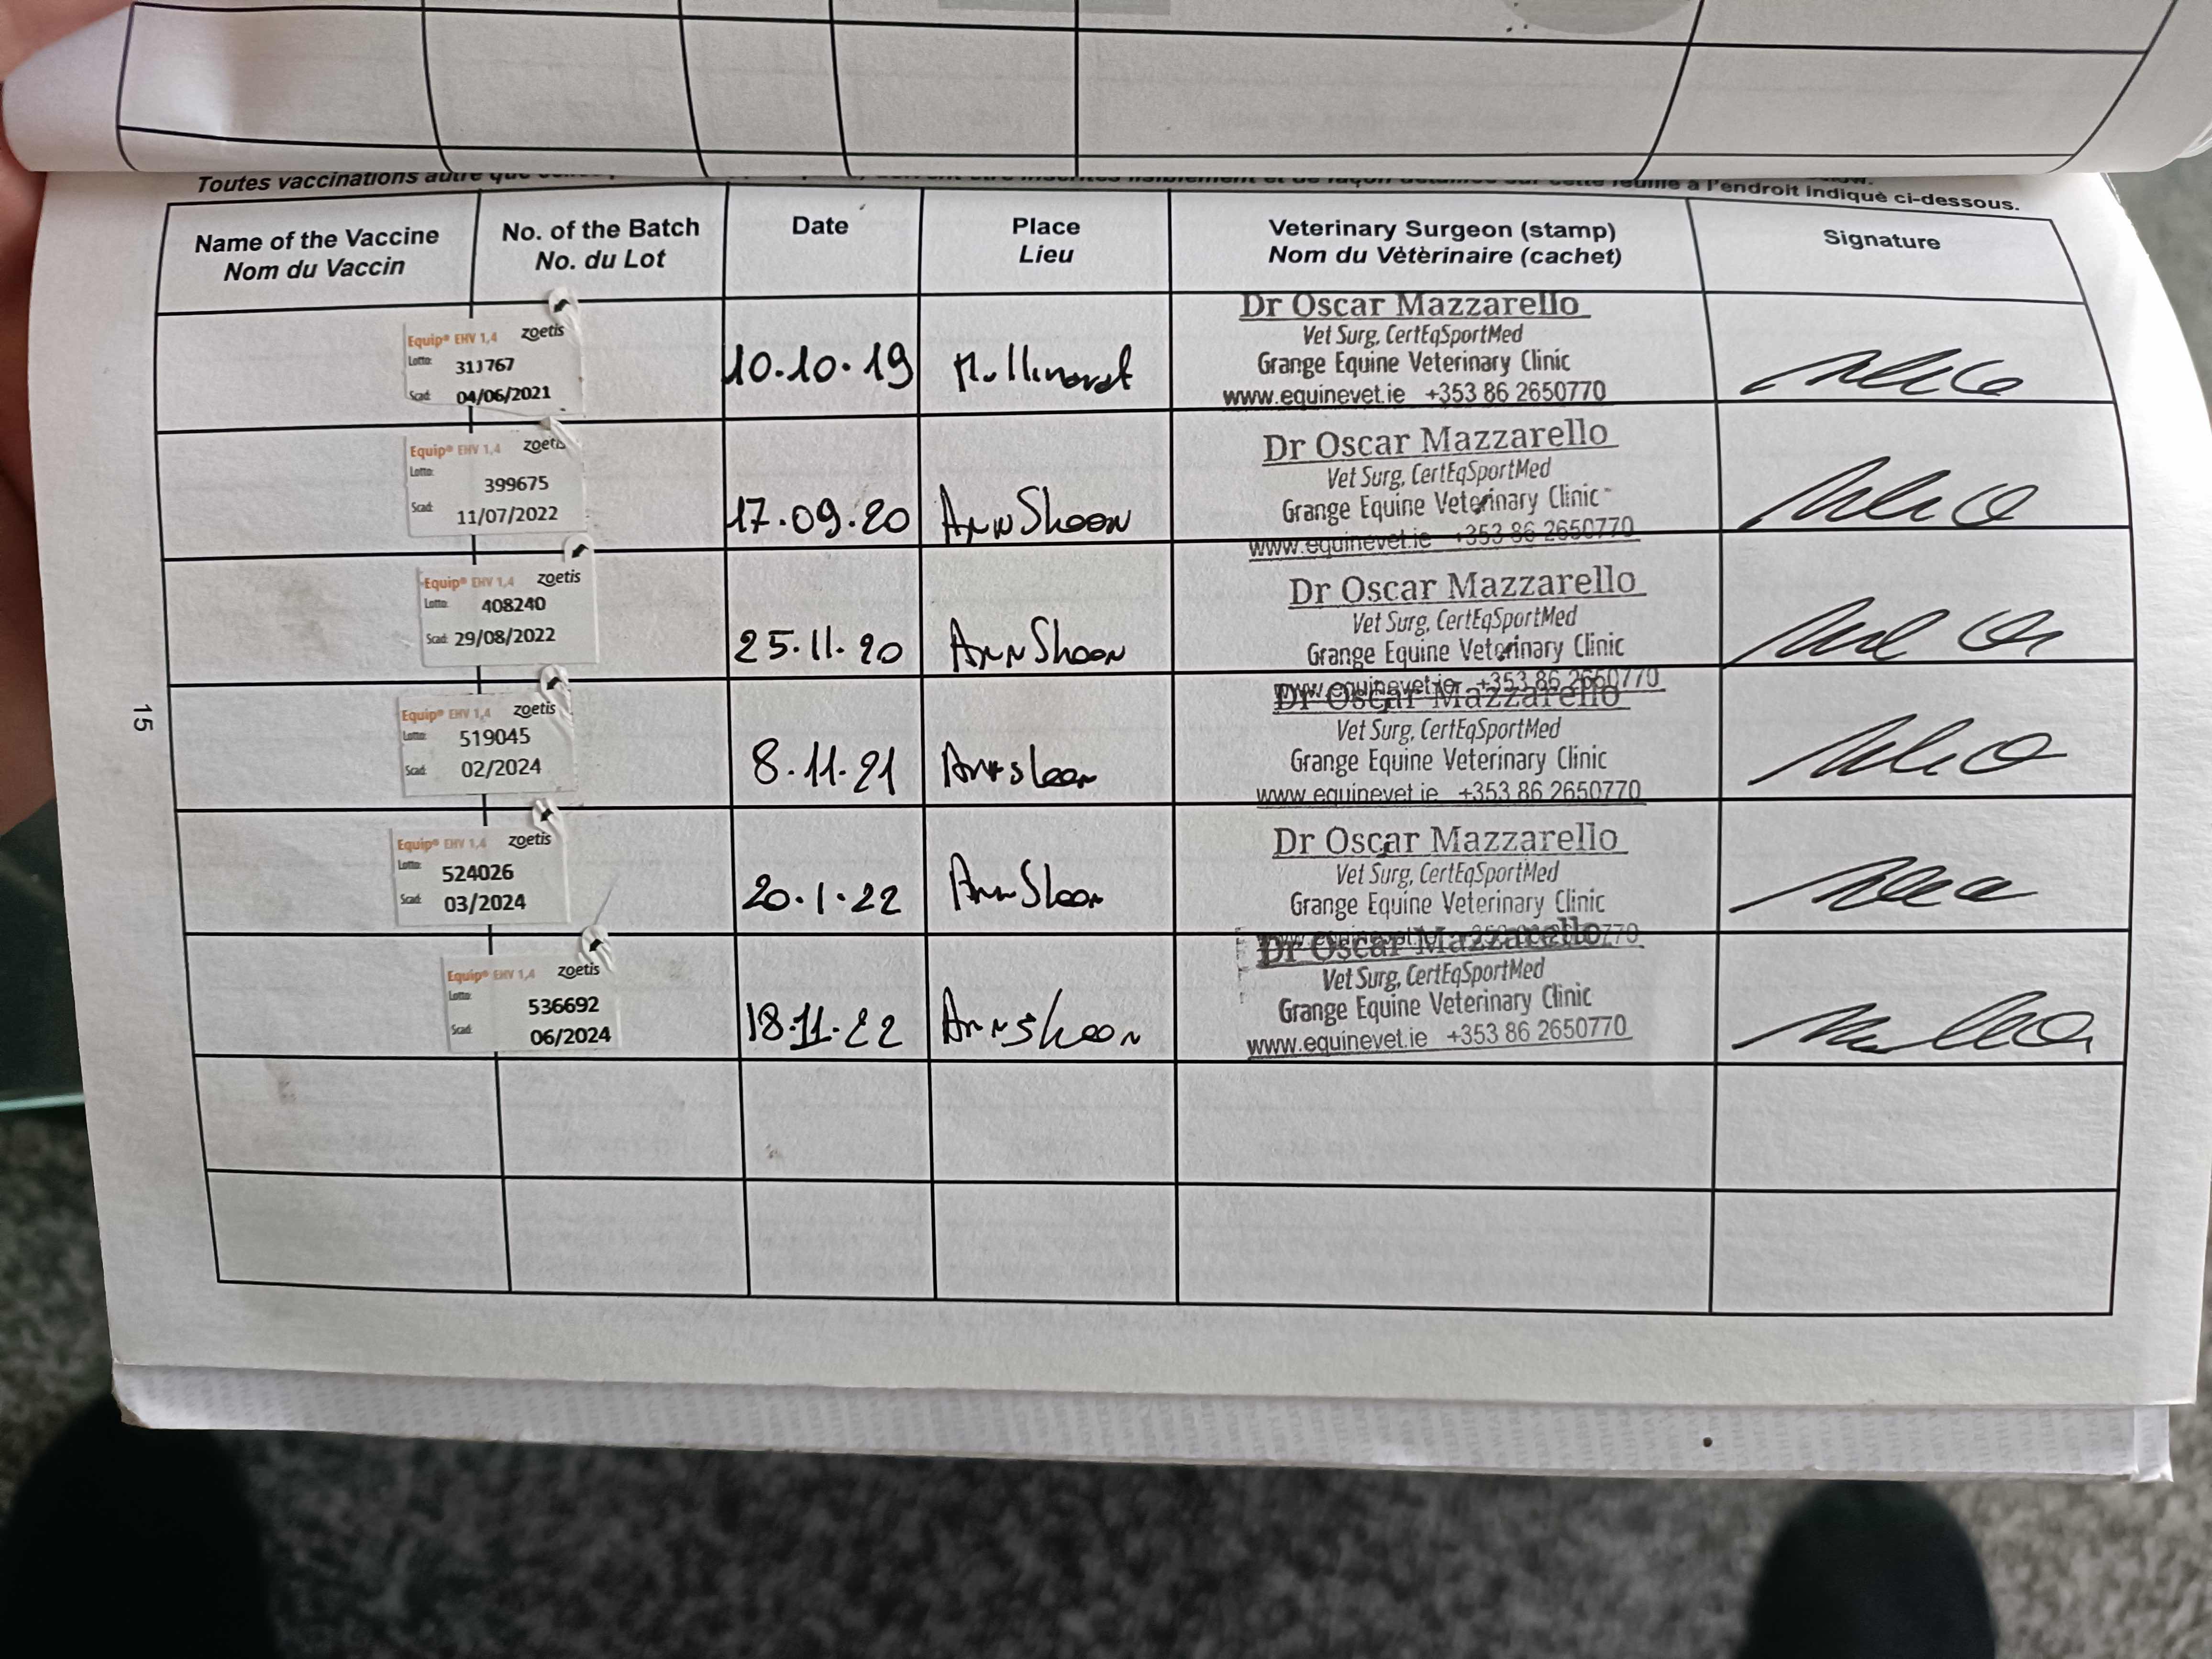 Toutes vaccinations autre que
à l'endroit indiquè ci-dessous.
Name of the Vaccine
Nom du Vaccin
No. of the Batch
No. du Lot
Date
Place
Lieu
Veterinary Surgeon (stamp)
Nom du Vètèrinaire (cachet)
Signature
Equip® EHV 1,4 zoetis
Lotto: 311767
Scad: 04/06/2021
10.10.19
Dr Oscar Mazzarello
Vet Surg, CertEqSportMed
Grange Equine Veterinary Clinic
www.equinevet.ie +353 86 2650770
Equip® EHV 1,4 zoetis
Lotto: 399675
Scad: 11/07/2022
17.09.20
AnnShoon
Dr Oscar Mazzarello
Vet Surg, CertEqSportMed
Grange Equine Veterinary Clinic
www.equinevet.ie +353 86 2650770
Equip® EHV 1,4 zoetis
Lotto: 408240
Scad: 29/08/2022
25.11.20
AnnShoon
Dr Oscar Mazzarello
Vet Surg, CertEqSportMed
Grange Equine Veterinary Clinic
www.equinevet.ie +353 86 2650770
Equip® EHV 1,4 zoetis
Lotto: 519045
Scad: 02/2024
8.11.21
Dr Oscar Mazzarello
Vet Surg, CertEqSportMed
Grange Equine Veterinary Clinic
www.equinevet.ie +353 86 2650770
Equip® EHV 1,4 zoetis
Lotto: 524026
Scad: 03/2024
20.1.22
Dr Oscar Mazzarello
Vet Surg, CertEqSportMed
Grange Equine Veterinary Clinic
Equip® EHV 1,4 zoetis
Lotto: 536692
Scad: 06/2024
18.11.22
Annshoon
Dr Oscar Mazzarello
Vet Surg, CertEqSportMed
Grange Equine Veterinary Clinic
www.equinevet.ie +353 86 2650770
15